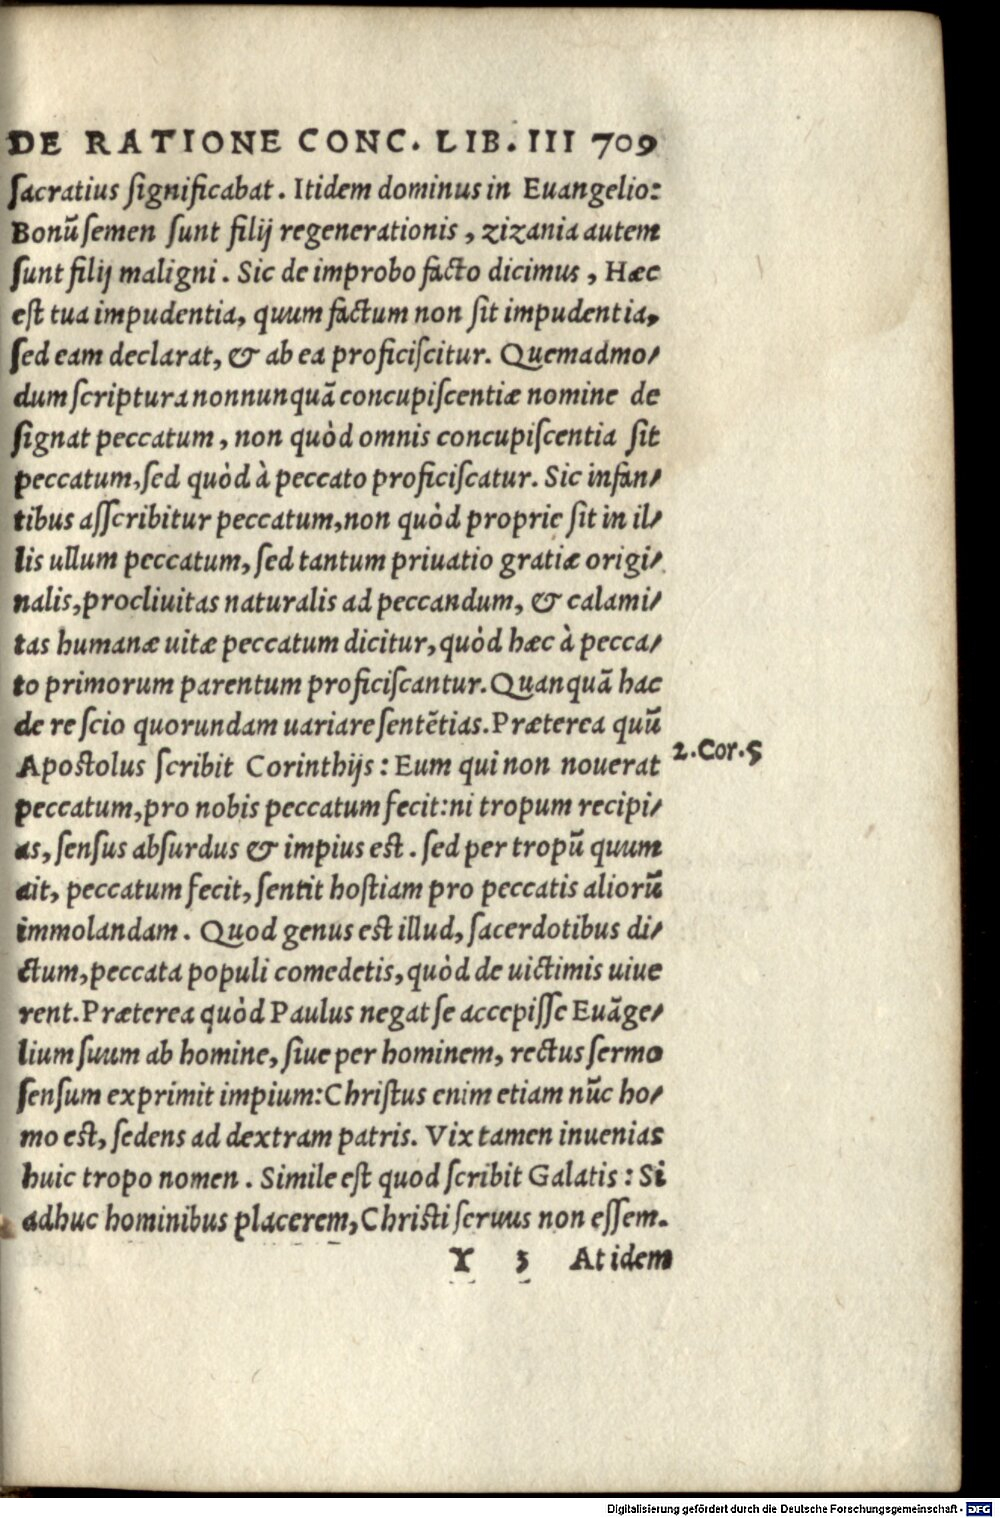 DE RATIONE CONC. LIB. III 709
sacratius significabat. Itidem dominus in Euangelio:
Bonũ semen sunt filij regenerationis, zizania autem
sunt filij maligni. Sic de improbo facto dicimus, Hæc
est tua impudentia, quum factum non sit impudentia,
sed eam declarat, & ab ea proficiscitur. Quemadmo/
dum scriptura nonnunquã concupiscentiæ nomine de
signat peccatum, non quòd omnis concupiscentia sit
peccatum, sed quòd à peccato proficiscatur. Sic infan/
tibus asscribitur peccatum, non quòd proprie sit in il/
lis ullum peccatum, sed tantum priuatio gratiæ origi/
nalis, procliuitas naturalis ad peccandum, & calami/
tas humanæ uitæ peccatum dicitur, quòd hæc à pecca/
to primorum parentum proficiscantur. Quanquã hac
de re scio quorundam uariare sentẽtias. Præterea quũ
Apostolus scribit Corinthijs: Eum qui non nouerat
2. Cor. 5
peccatum, pro nobis peccatum fecit: ni tropum recipi/
as, sensus absurdus & impius est. sed per tropũ quum
ait, peccatum fecit, sentit hostiam pro peccatis aliorũ
immolandam. Quod genus est illud, sacerdotibus di/
ctum, peccata populi comedetis, quòd de uictimis uiue
rent. Præterea quòd Paulus negat se accepisse Euãge/
lium suum ab homine, siue per hominem, rectus sermo
sensum exprimit impium: Christus enim etiam nũc ho/
mo est, sedens ad dextram patris. Vix tamen inuenias
huic tropo nomen. Simile est quod scribit Galatis: Si
adhuc hominibus placerem, Christi seruus non essem.
Y 3 At idem
Digitalisierung gefördert durch die Deutsche Forschungsgemeinschaft - DFG